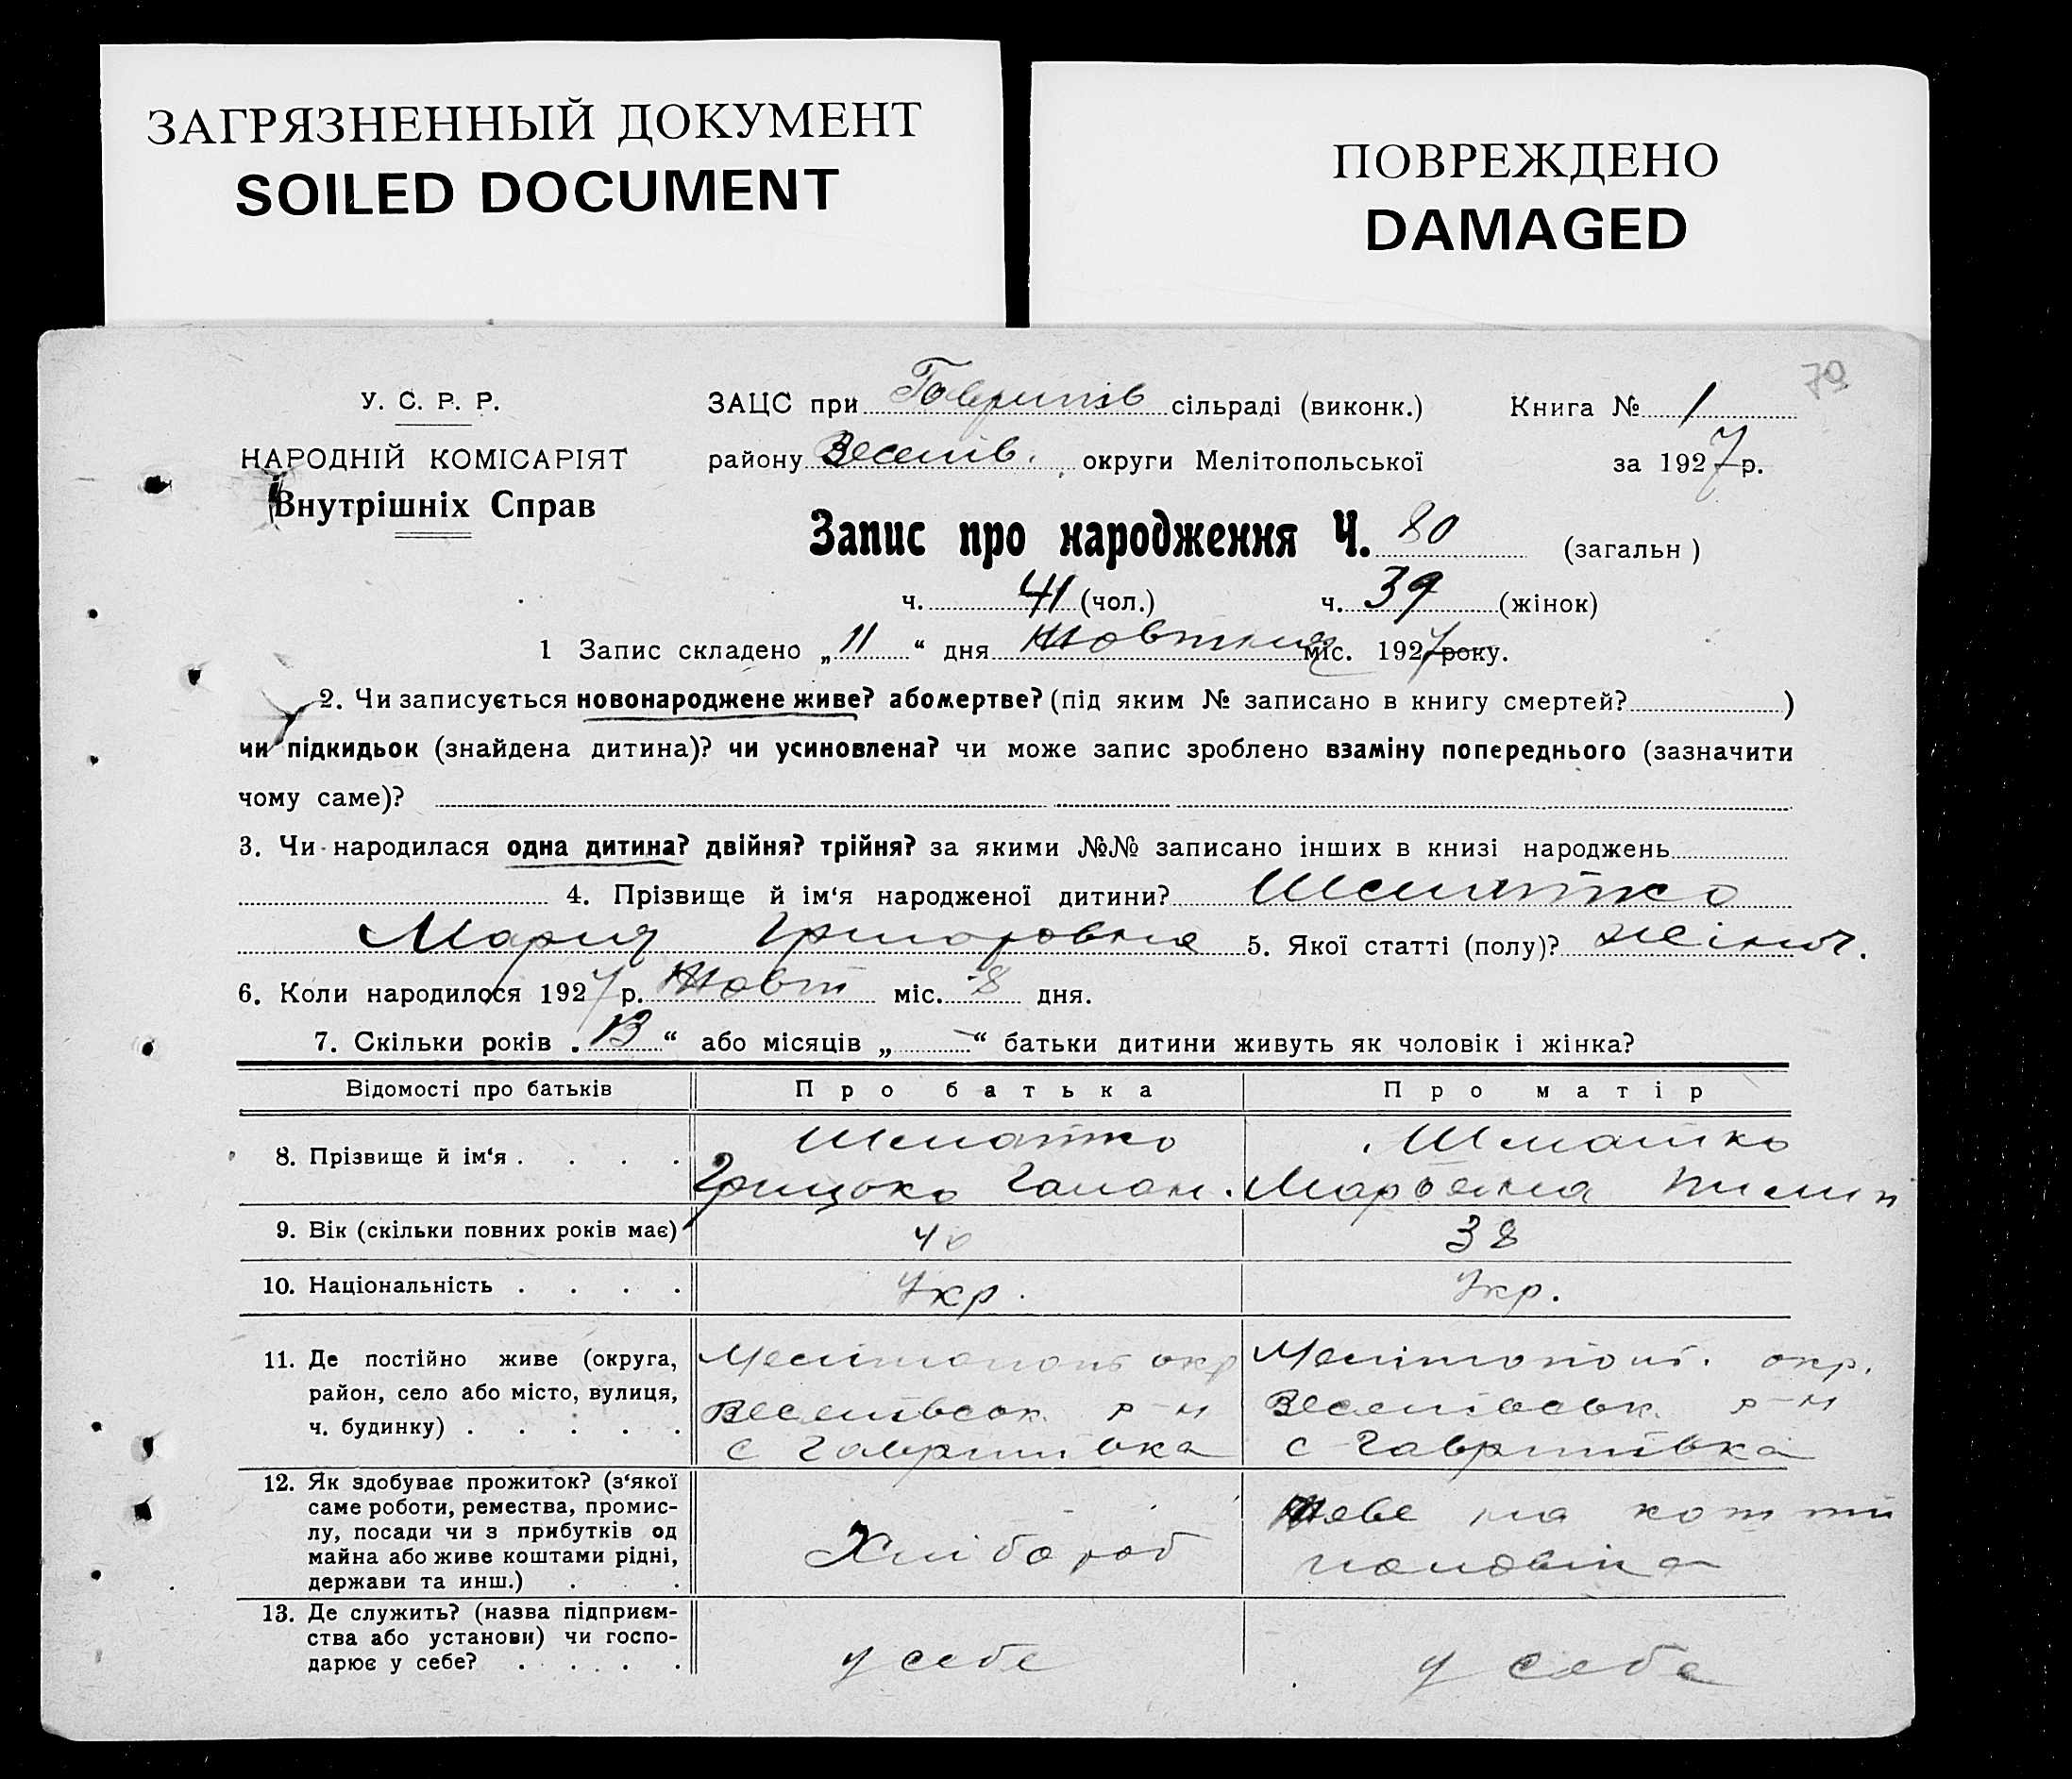 ЗАГРЯЗНЕННЫЙ ДОКУМЕНТ
SOILED DOCUMENT
ПОВРЕЖДЕНО
DAMAGED
79
У. С. Р. Р.
НАРОДНІЙ КОМІСАРІЯТ
Внутрішніх Справ
ЗАЦС при Гаврилів сільраді (виконк.) Книга № 1
району Веселів. округи Мелітопольської за 1927 р.
Запис про народження Ч. 80 (загальн )
ч. 41 (чол.) ч. 39 (жінок)
1 Запис складено „ 11 “ дня Жовтня міс. 1927 року.
2. Чи записується новонароджене живе? або мертве? (під яким № записано в книгу смертей? )
чи підкидьок (знайдена дитина)? чи усиновлена? чи може запис зроблено взаміну попереднього (зазначити
чому саме)?
3. Чи народилася одна дитина? двійня? трійня? за якими №№ записано інших в книзі народжень
4. Прізвище й ім‘я народженої дитини? Шматко
Мария Григоровна 5. Якої статті (полу)? жіноч.
6. Коли народилося 1927 р. Жовт міс. 8 дня.
7. Скільки років „ 13 “ або місяців „ — “ батьки дитини живуть як чоловік і жінка?
Відомості про батьків Про батька Про матір
8. Прізвище й ім‘я . . . . Шматко Шматко
Грицько Мар
9. Вік (скільки повних років має) 40 38
10. Національність . . . . Укр. Укр.
11. Де постійно живе (округа, район, село або місто, вулиця, ч. будинку) . . . . .
Мелітопольс окр
Веселівськ. р-н
с Гаврилівка
Мелітопольс. окр.
Веселівськ. р-н
с Гаврилівка
12. Як здобуває прожиток? (з‘якої
саме роботи, ремества, промис-
лу, посади чи з прибутків од
майна або живе коштами рідні,
держави та инш.) . . .
Хлібороб
Живе на кошти
чоловіка
13. Де служить? (назва підприєм-
ства або установи) чи госпо-
дарює у себе? . . . . .
у себе
у себе